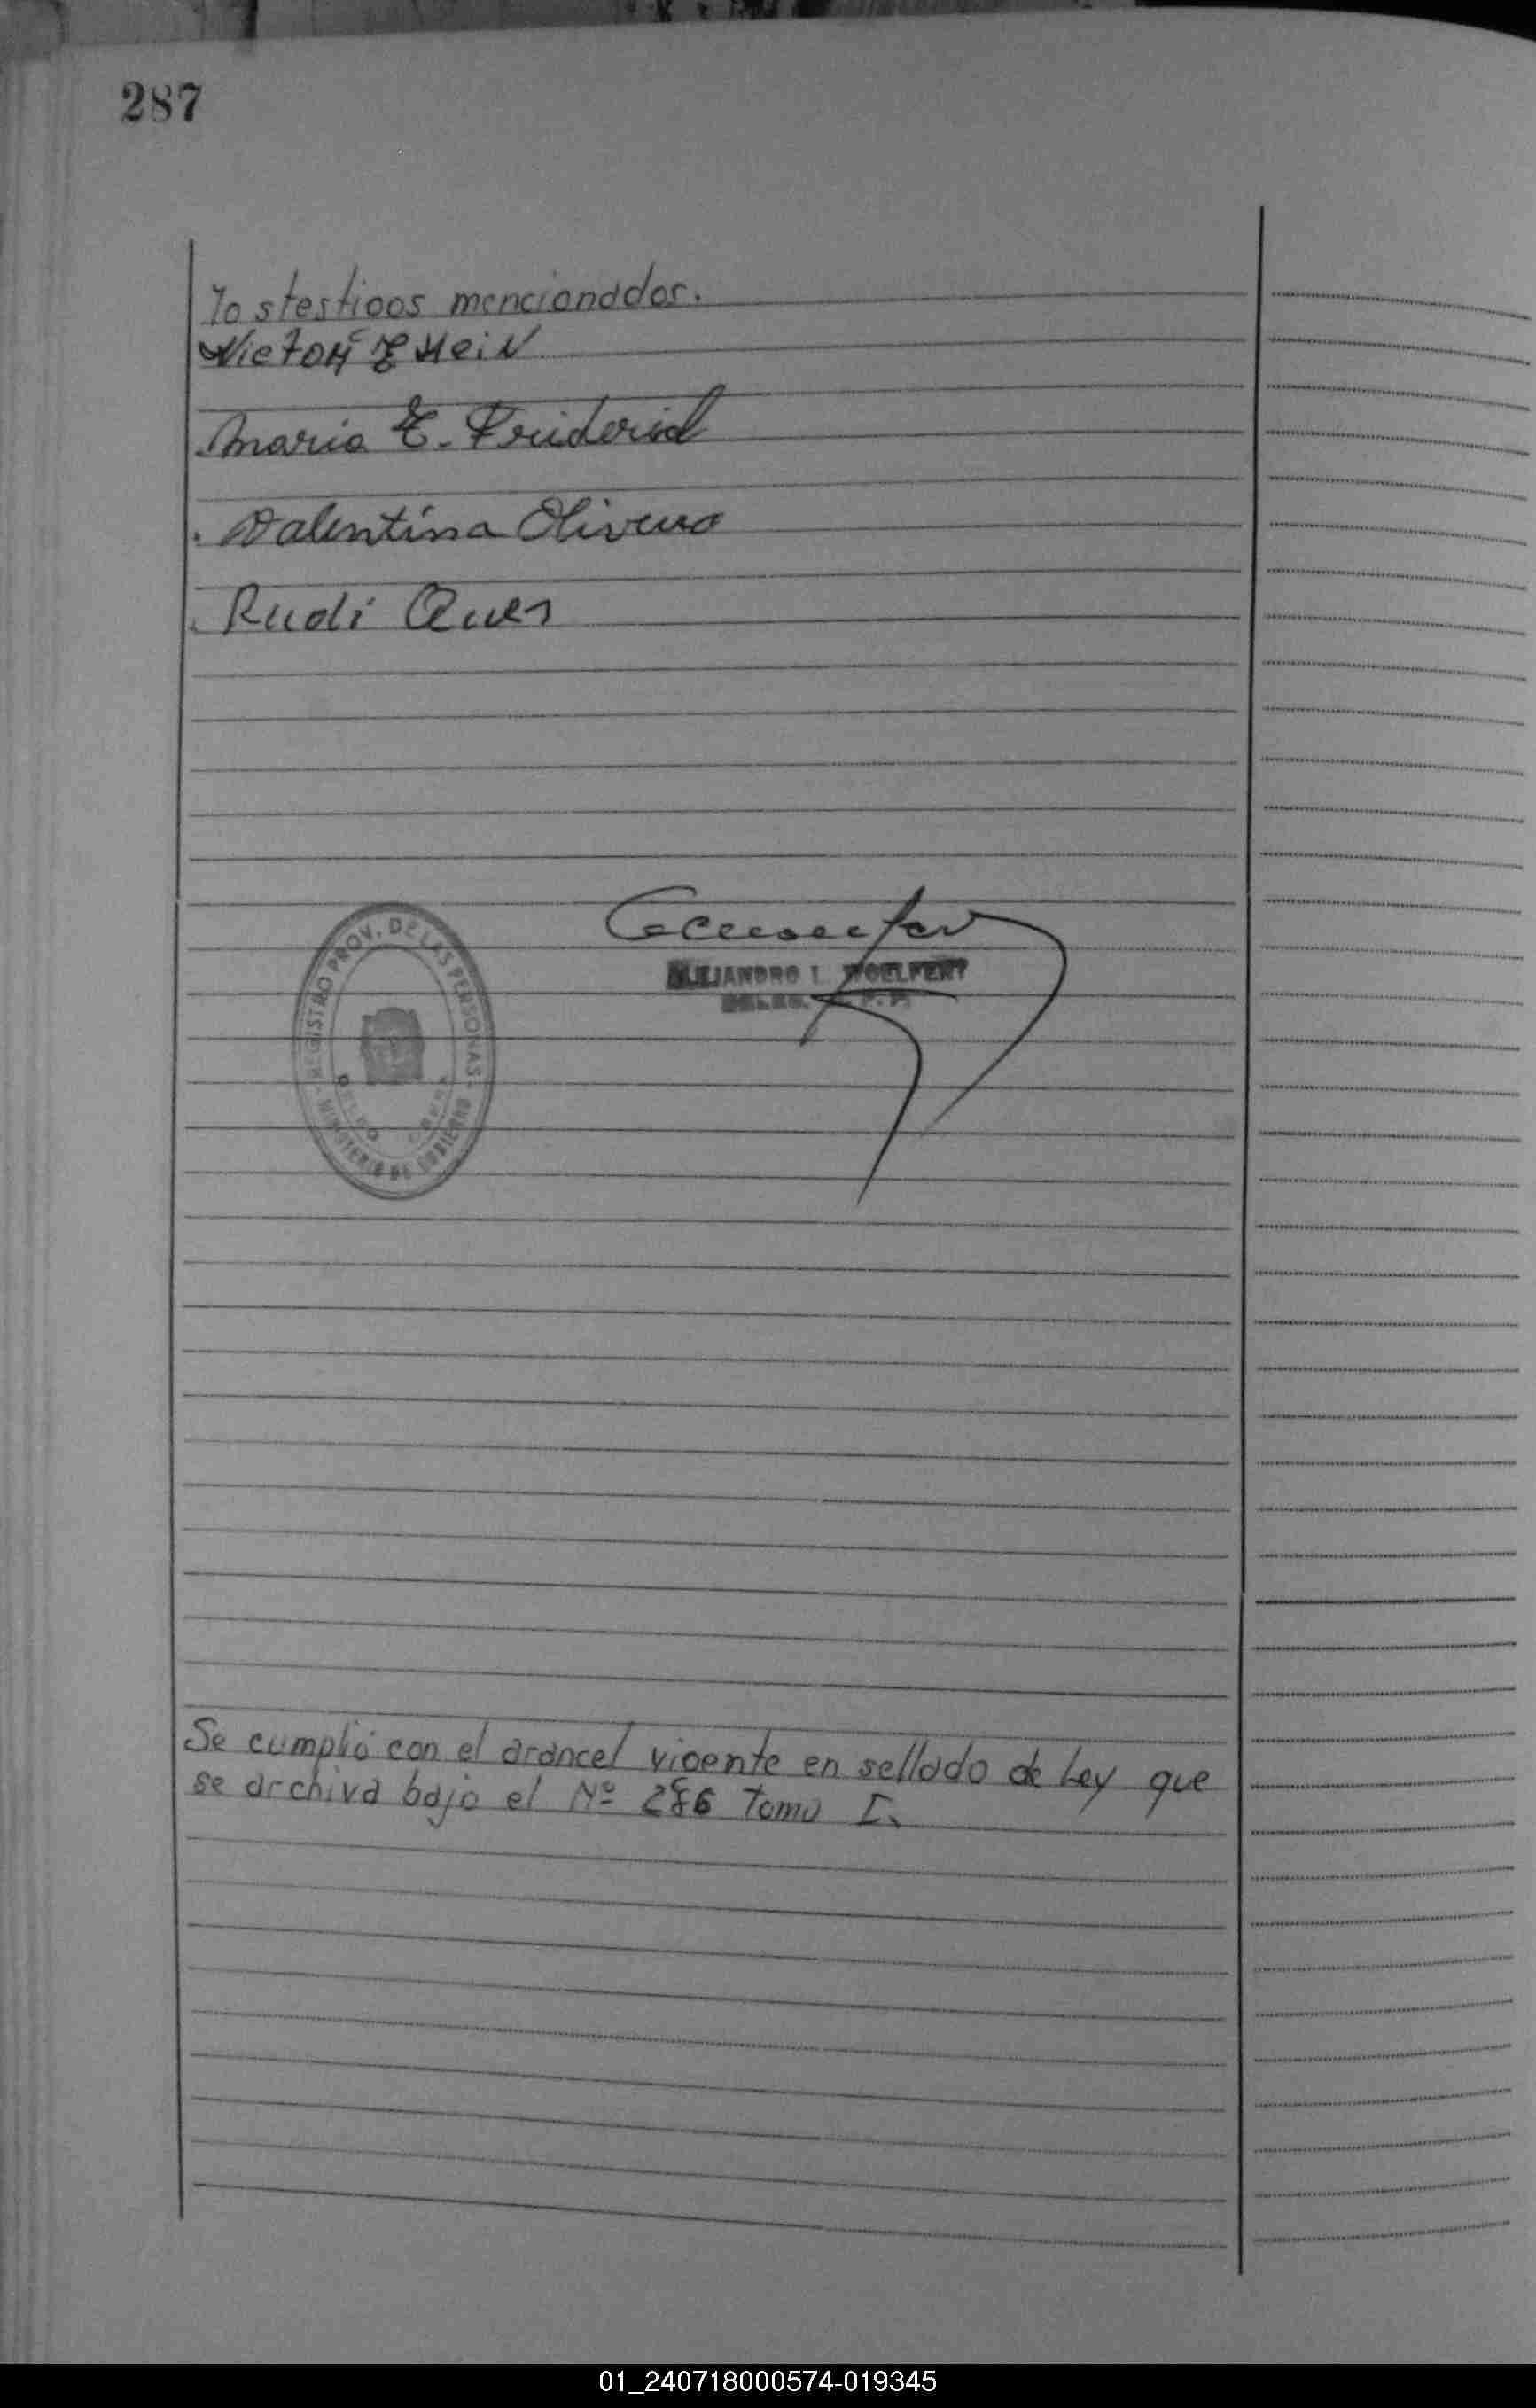 287
lostestigos mencionados.
Victor E Hein
Maria E. Friderich
Valentina Olivera
Rudi
REGISTRO PROV. DE LAS PERSONAS
MINISTERIO DE GOBIERNO
ALEJANDRO L. WOELFERT
DELEG.
Se cumplió con el arancel vigente en sellado de Ley que
se archiva bajo el Nº 286 Tomo I.
01_240718000574-019345